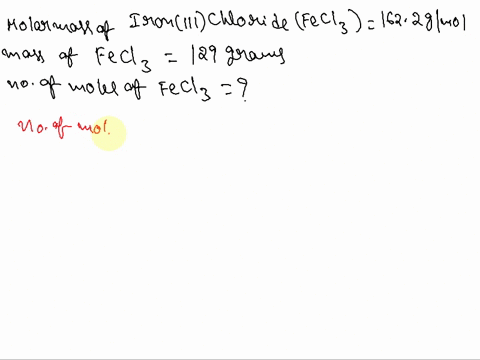 Molarmass of Iron(III)Chloride(FeCl3)=162.2g/mol
mass of FeCl3 = 129 grams
no. of moles of FeCl3 = ?
No. of mol